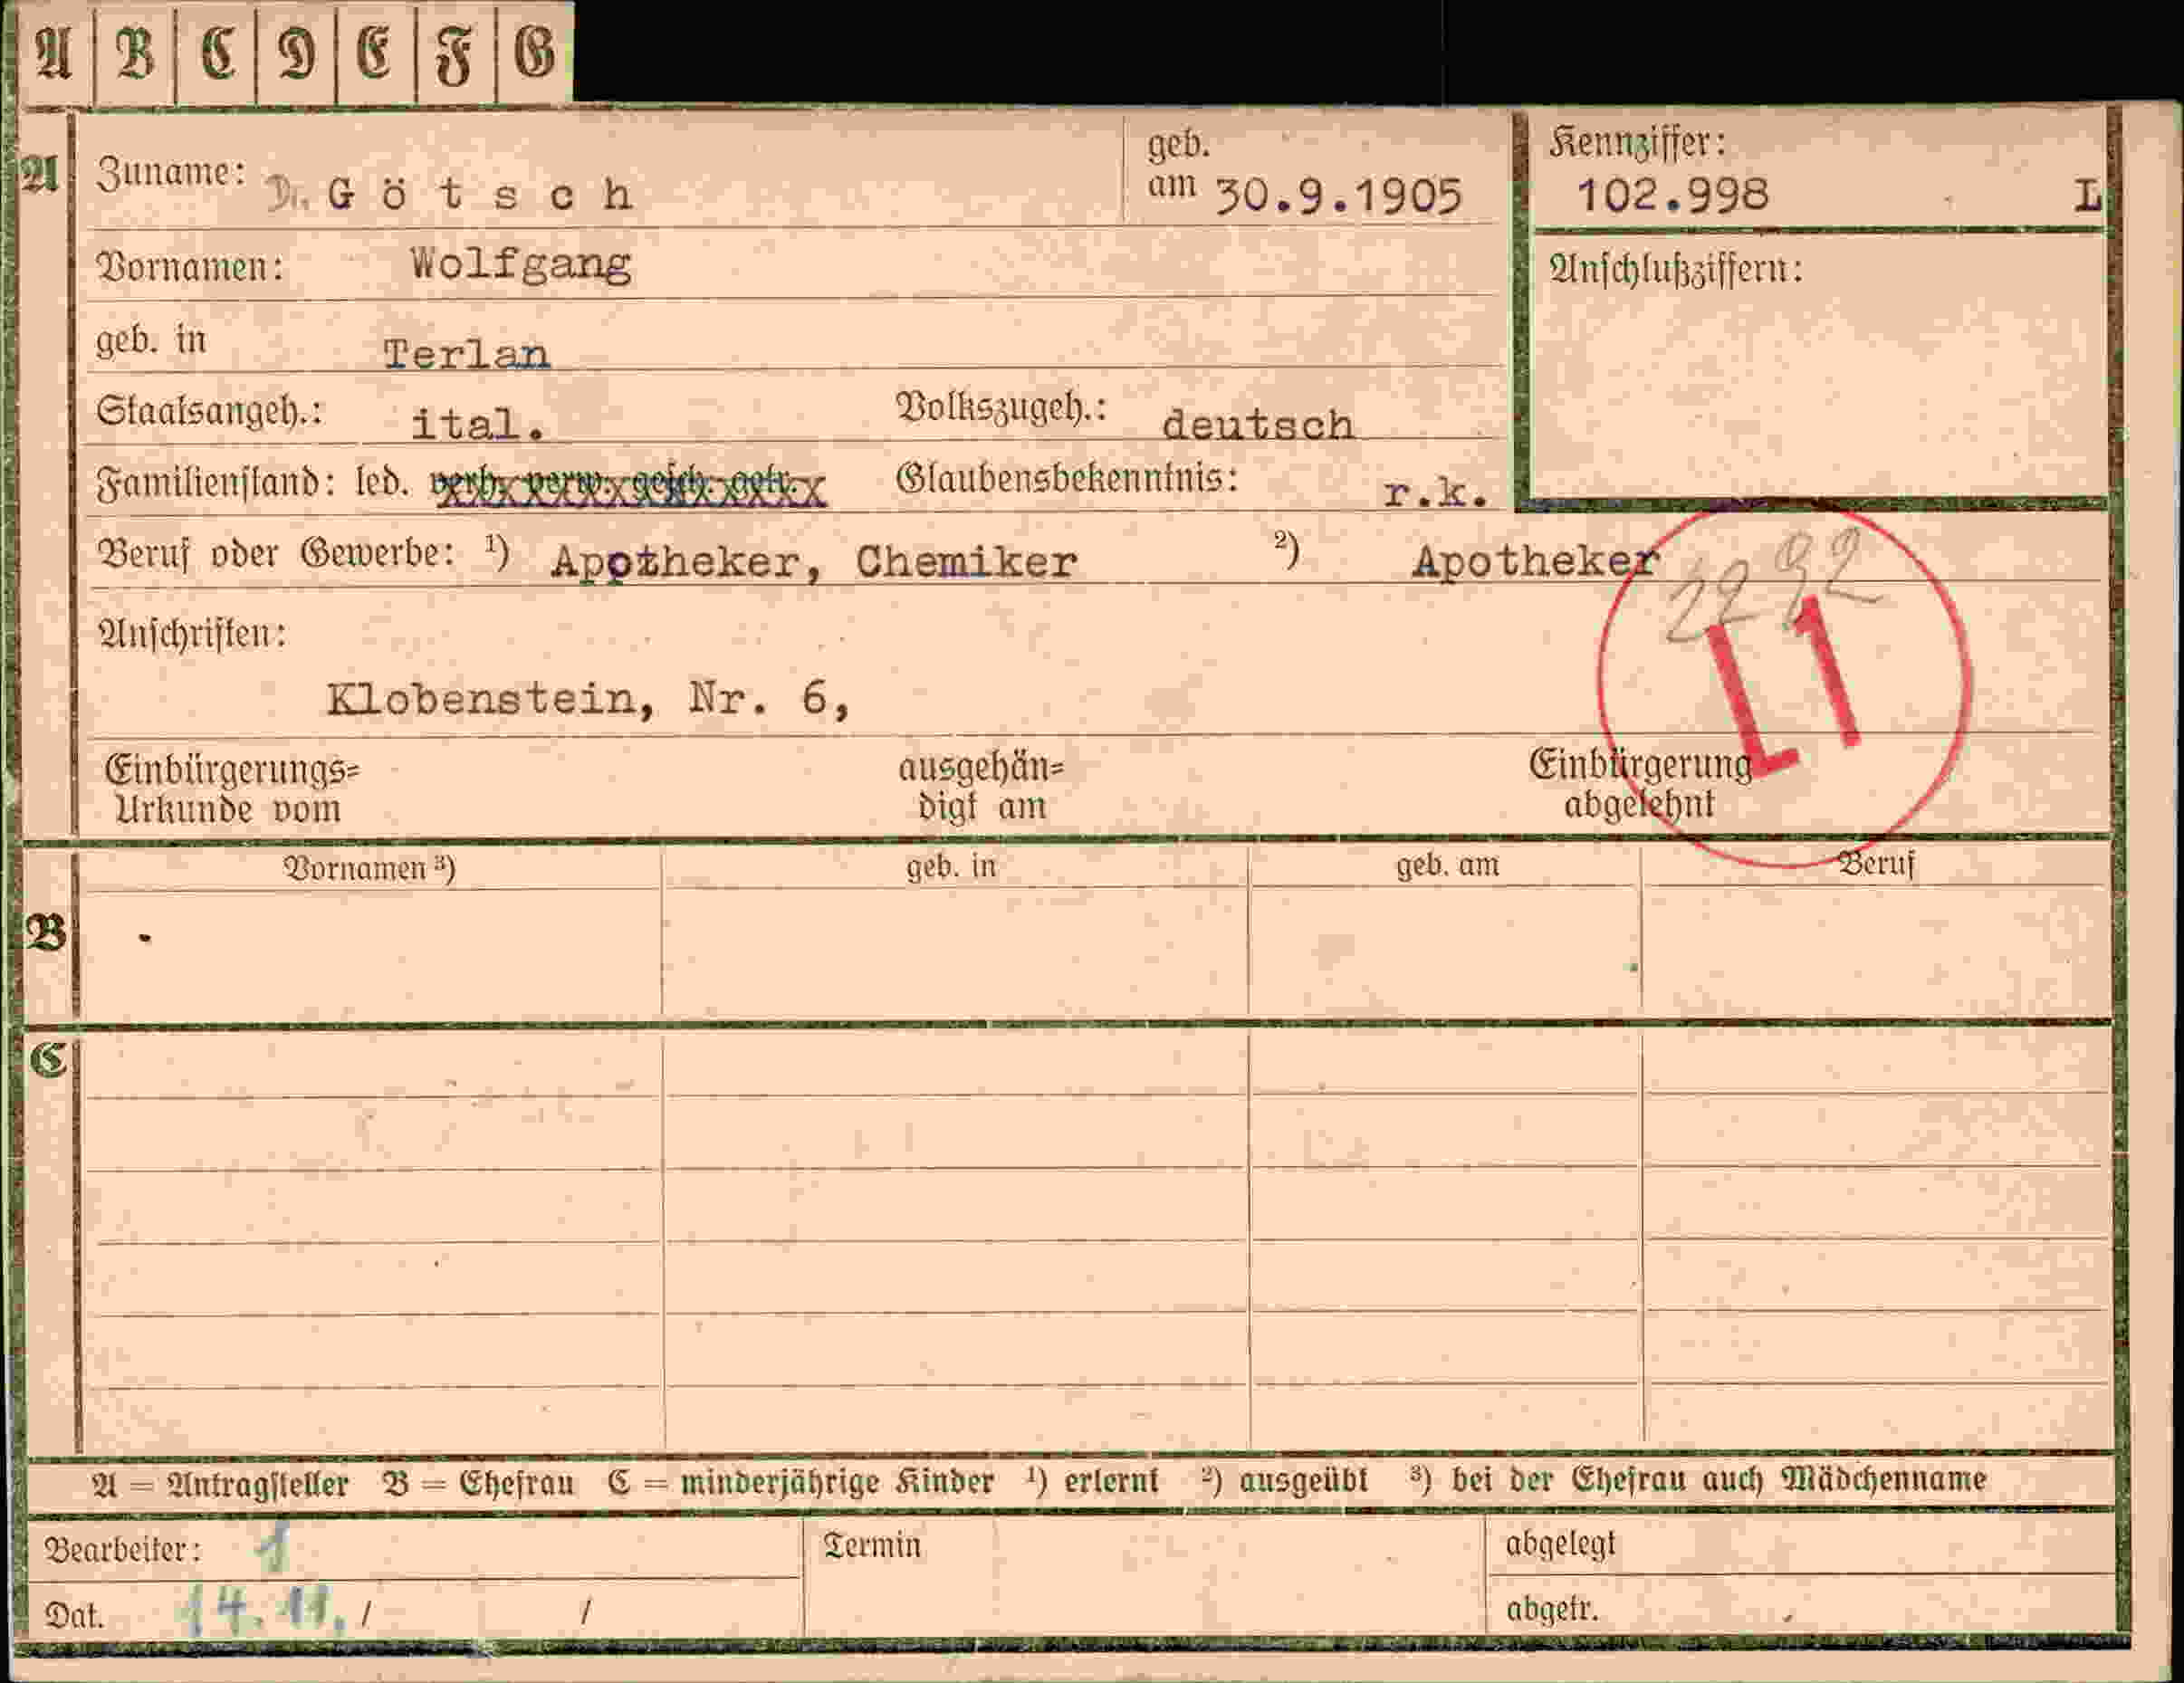 A B C D E F G
A Zuname: Dr. Götsch geb. am 30.9.1905 Kennziffer: 102.998 L
Vornamen: Wolfgang Anschlußziffern:
geb. in Terlan
Staatsangeh.: ital. Volkszugeh.: deutsch
Familienstand: led. verh. verw. gesch. getr. Glaubensbekenntnis: r.k.
Beruf oder Gewerbe: 1) Apotheker, Chemiker 2) Apotheker
Anschriften:
L1
Klobenstein, Nr. 6,
Einbürgerungs= ausgehän= Einbürgerung
Urkunde vom digt am abgelehnt
Vornamen 3) geb. in geb. am Beruf
B
C
A = Antragsteller B = Ehefrau C = minderjährige Kinder 1) erlernt 2) ausgeübt 3) bei der Ehefrau auch Mädchenname
Bearbeiter: 1 Termin abgelegt
Dat. 14.11. / / abgetr.